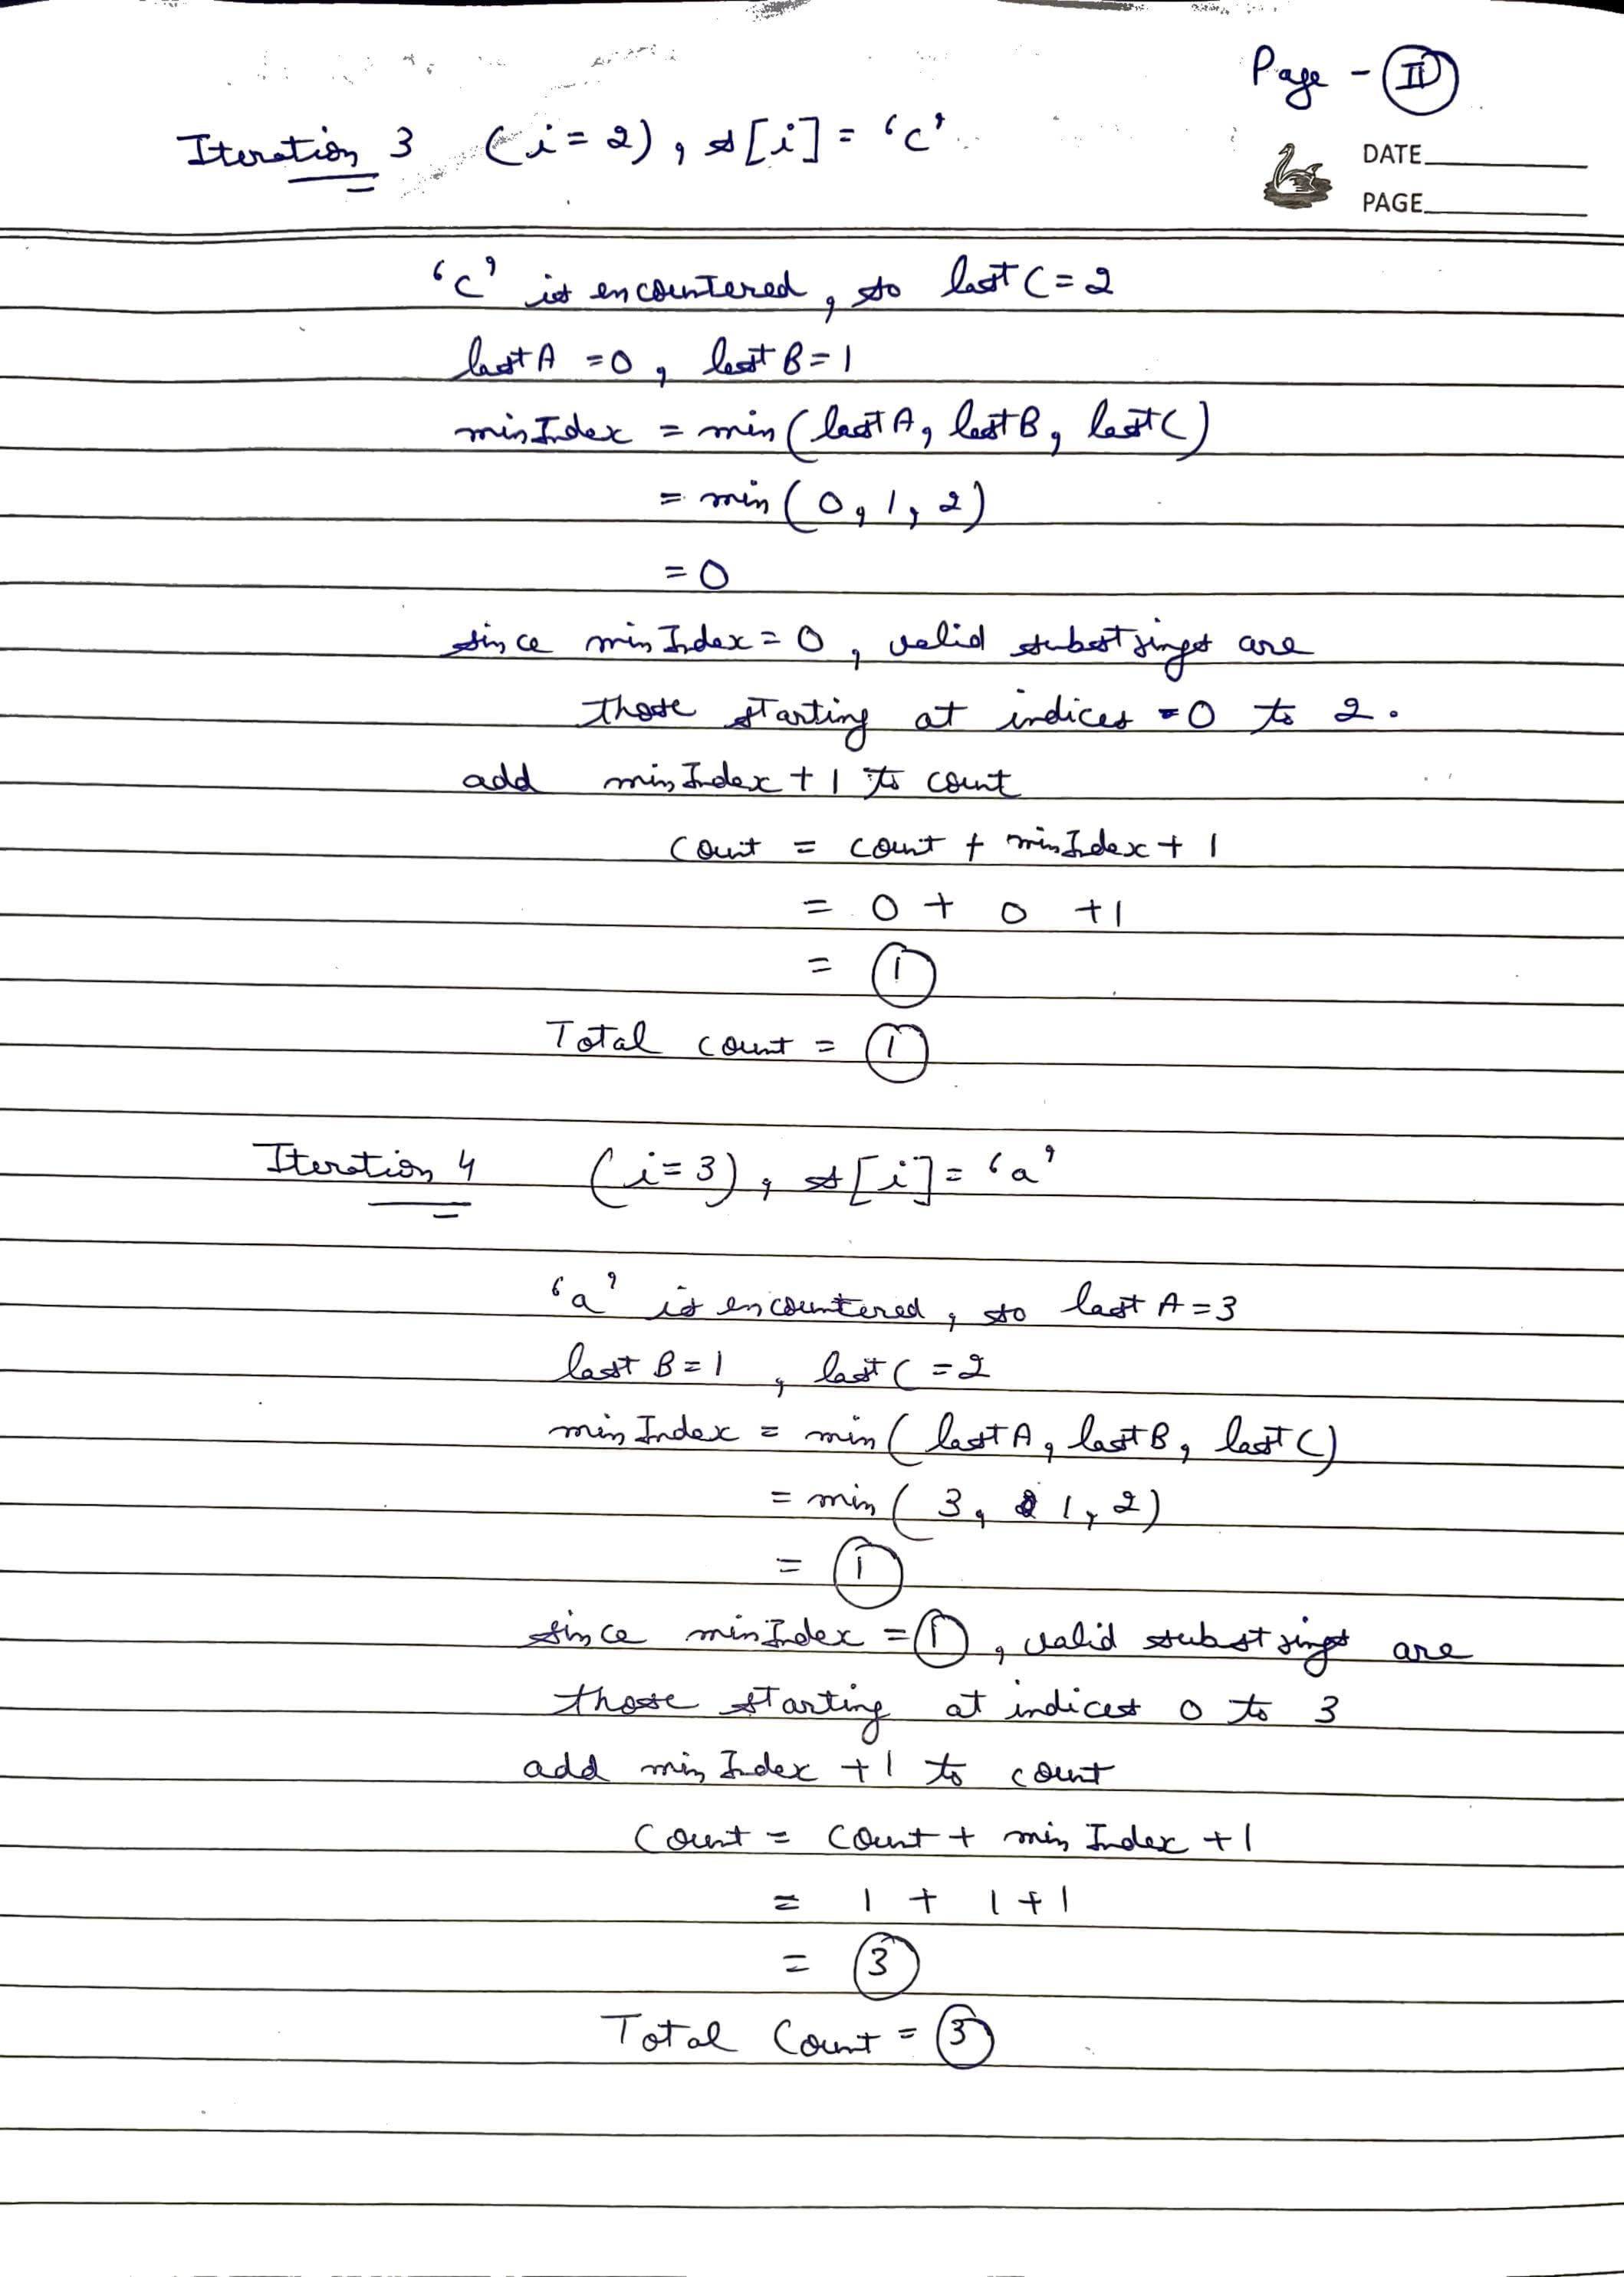 Page - II
Iteration 3 (i = 2), s[i] = 'c'
DATE
PAGE
'c' is encountered, so lastC = 2
lastA = 0, lastB = 1
minIndex = min(lastA, lastB, lastC)
= min(0, 1, 2)
= 0
since minIndex = 0, valid substrings are
those starting at indices = 0 to 2.
add minIndex + 1 to count
count = count + minIndex + 1
= 0 + 0 + 1
= 1
Total count = 1
Iteration 4 (i = 3), s[i] = 'a'
'a' is encountered, so lastA = 3
lastB = 1, lastC = 2
minIndex = min(lastA, lastB, lastC)
= min(3, 1, 2)
= 1
since minIndex = 1, valid substrings are
those starting at indices 0 to 3
add minIndex + 1 to count
Count = Count + minIndex + 1
= 1 + 1 + 1
= 3
Total Count = 3